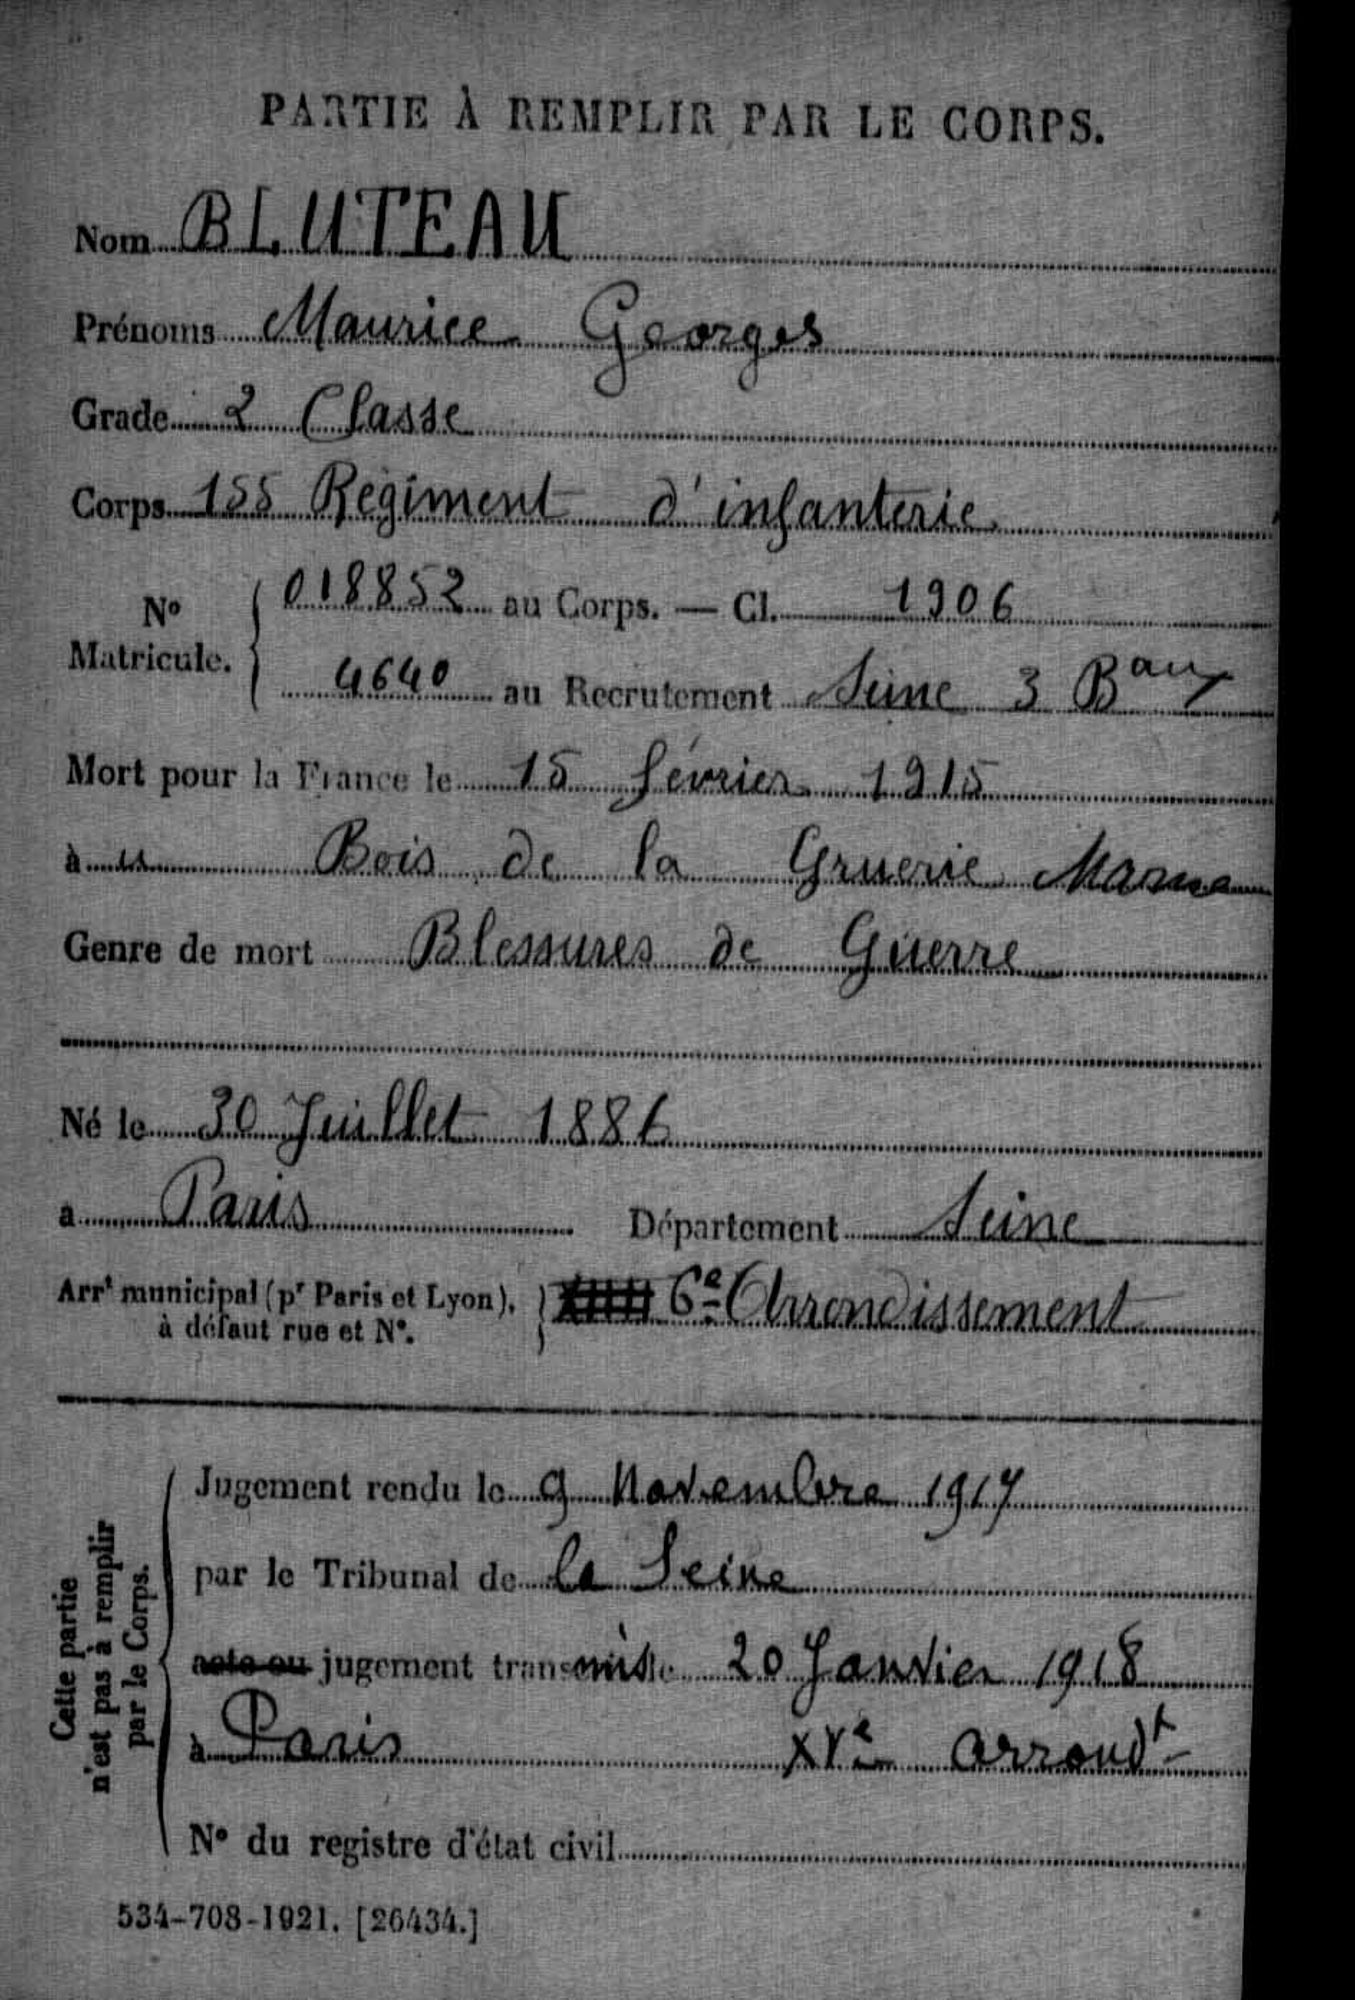 PARTIE À REMPLIR PAR LE CORPS.
Nom BLUTEAU
Prénoms Maurice Georges
Grade 2 Classe
Corps 155 Régiment d'infanterie
N° Matricule. { 018852 au Corps. — Cl. 1906
4640 au Recrutement Seine 3 Baux
Mort pour la France le 15 février 1915
à Bois de la Gruerie Marne
Genre de mort Blessures de Guerre
Né le 30 Juillet 1886
à Paris Département Seine
Arrt municipal (pr Paris et Lyon), à défaut rue et N°. } 6e Arrondissement
Cette partie n'est pas à remplir par le Corps.
Jugement rendu le 9 Novembre 1917
par le Tribunal de la Seine
acte ou jugement transmis le 20 Janvier 1918
à Paris XVe arrondt
N° du registre d'état civil
534-708-1921. [26434.]